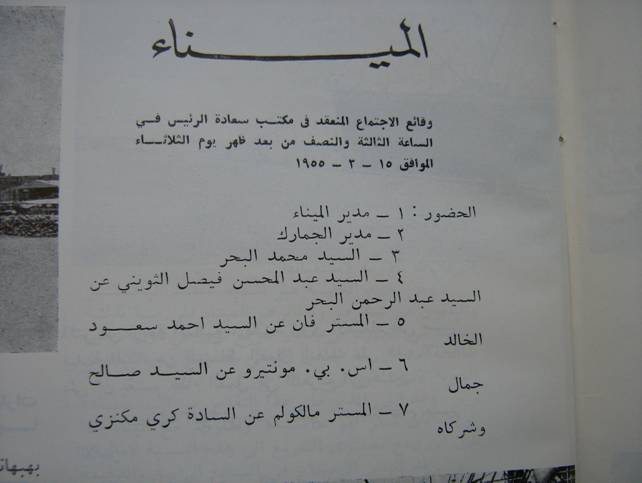 الميناء
وقائع الاجتماع المنعقد في مكتب سعادة الرئيس في
الساعة الثالثة والنصف من بعد ظهر يوم الثلاثاء
الموافق ١٥ - ٣ - ١٩٥٥
الحضور : ١ - مدير الميناء
٢ - مدير الجمارك
٣ - السيد محمد البحر
٤ - السيد عبد المحسن فيصل الثويني عن
السيد عبد الرحمن البحر
٥ - المستر فان عن السيد احمد سعود
الخالد
٦ - اس. بي. مونتيرو عن السيد صالح
جمال
٧ - المستر مالكولم عن السادة كري مكنزي
وشركاه